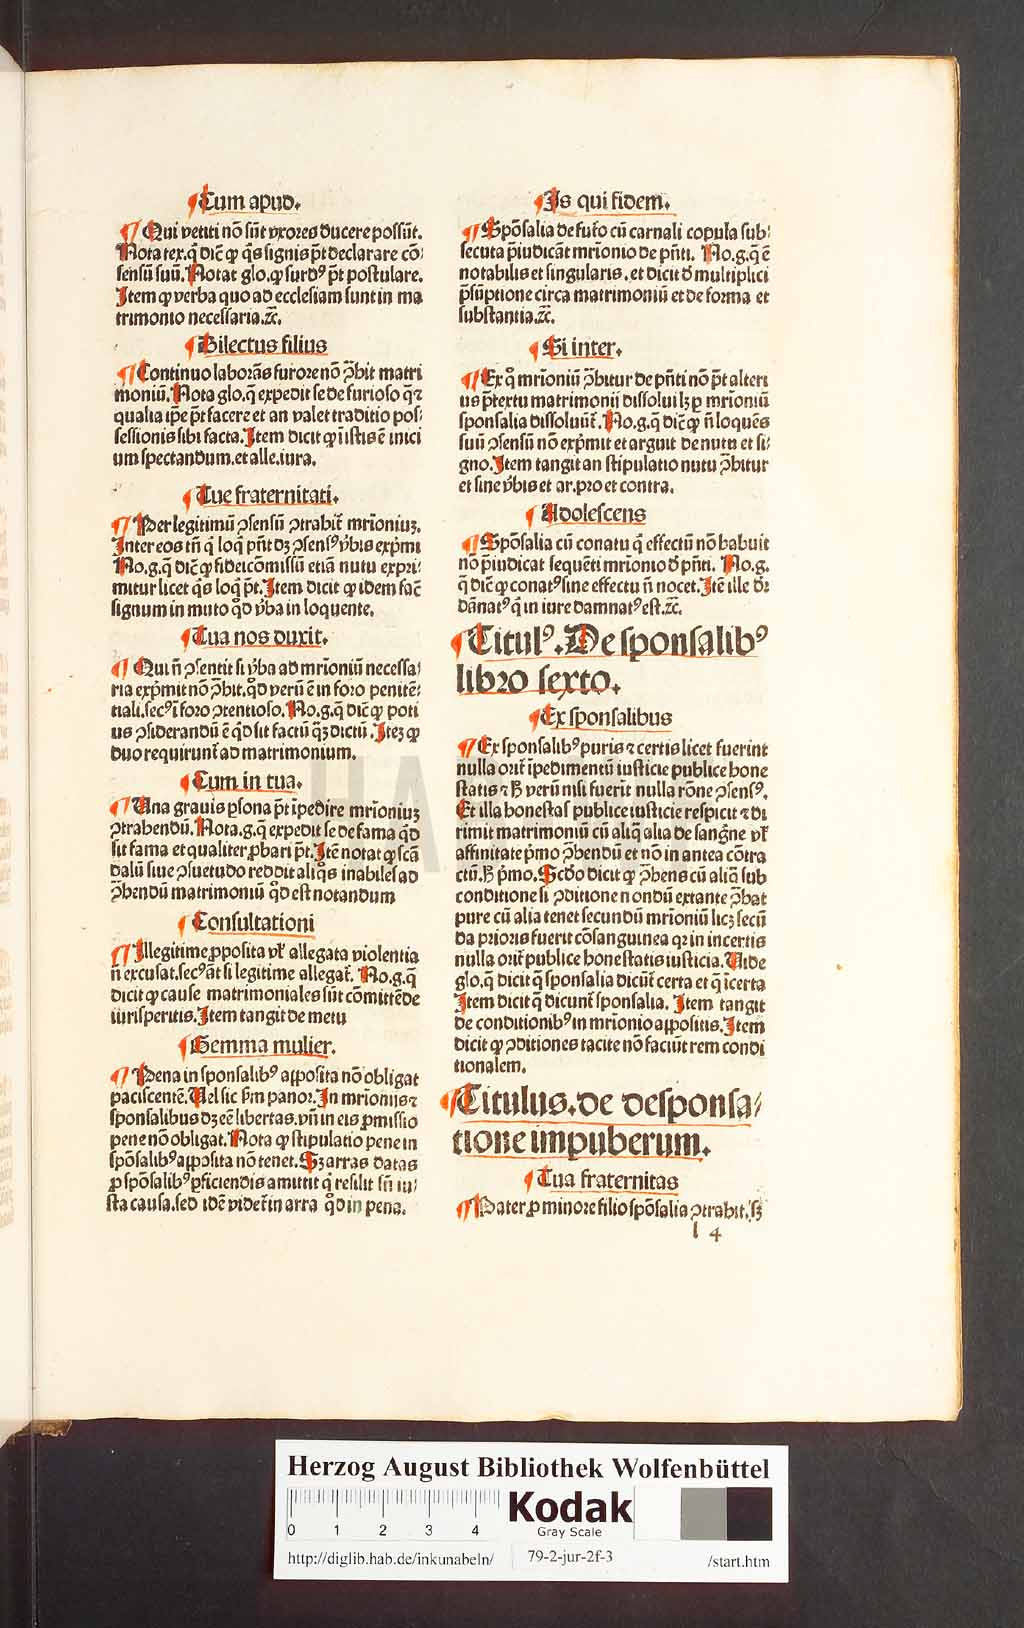 ¶Cum apud.
¶ Qui vetiti nō sūt vxores ducere possūt.
Nota tex. q̄ dic̄ ꝙ q̄s signis p̄t declarare cō⸗
sensū suū. Notat glo. ꝙ surdꝰ p̄t postulare.
Item ꝙ verba quo ad ecclesiam sunt in ma
trimonio necessaria.ꝛc̄.
¶Dilectus filius
¶Continuo laborās furore nō ꝯ̄hit matri
moniū. Nota glo. q̄ expedit se de furioso q̄ ⁊
qualia ip̄e p̄t facere et an valet traditio pos⸗
sessionis sibi facta. Item dicit ꝙ ī istis ē inici
um spectandum. et alle. iura.
¶Tue fraternitati.
¶ Per legitimū ↄsensū ↄtrahit̄ mr̄ioniuꝫ.
Inter eos tn̄ q̄ loq̄ pn̄t dꝫ ↄsensꝰ v̄bis exp̄mi
No. g. q̄ dic̄ ꝙ fideicōmissū etiā nutu expri⸗
mitur licet q̄s loq̄ p̄t. Item dicit ꝙ idem fac̄
signum in muto qd̄ v̄ba in loquente.
¶Tua nos duxit.
¶ Qui n̄ ↄsentit si v̄ba ad mr̄ioniū necessa⸗
ria exp̄mit nō ꝯ̄hit. qd̄ verū ē in foro penitē⸗
tiali. secꝰ ī foro ↄtentioso. No. g. q̄ dic̄ ꝙ poti
us ↄsiderandū ē qd̄ sit factū q̄ꝫ dictū. Iteꝫ ꝙ
duo requirunt̄ ad matrimonium.
¶Cum in tua.
¶ Una grauis ꝑsona p̄t īpedire mr̄ioniuꝫ
ↄtrahendū. Nota. g. q̄ expedit se de fama qd̄
sit fama et qualiter ꝓbari p̄t. Itē notat ꝙ scā
dalū siue ↄsuetudo reddit aliq̄s inabiles ad
ꝯ̄hendū matrimoniū qd̄ est notandum
¶Consultationi
¶Illegitime ꝓposita vl̄ allegata violentia
n̄ excusat. secꝰ āt si legitime allegat̄. No. g. q̄
dicit ꝙ cause matrimoniales sūt cōmittēde
iurisperitis. Item tangit de metu
¶Gemma mulier.
¶ Pena in sponsalibꝰ apposita nō obligat
paciscentē. Uel sic ẜm panor. In mr̄ionijs ⁊
sponsalibus dꝫ eē libertas. vn̄ in eis ꝓmissio
pene nō obligat. Nota ꝙ stipulatio pene in
spōsalibꝰ apposita nō tenet. Sꝫ arras datas
ꝓ spōsalibꝰ ꝑficiendis amittit q̄ resilit sn̄ iu⸗
sta causa. sed idē videt̄ in arra qd̄ in pena.
¶Is qui fidem.
¶Spōsalia de futo cū carnali copula sub⸗
secuta p̄iudicāt mrionio de pn̄ti. No. g. q̄ ē
notabilis et singularis. et dicit d̄ multiplici
p̄sūptione circa matrimoniū et de forma et
substantia.ꝛc̄.
¶Si inter.
¶Ex q̄ mr̄ioniū ꝯ̄hitur de pn̄ti nō p̄t alteri
us p̄textu matrimonij dissolui lꝫ ꝑ mr̄ioniū
sponsalia dissoluūt̄. No. g. q̄ dic̄ ꝙ n̄ loquēs
suū ↄsensū nō exp̄mit et arguit de nutu et si⸗
gno. Item tangit an stipulatio nutu ꝯ̄hitur
et sine v̄bis et ar. pro et contra.
¶Adolescens
¶Spōsalia cū conatu q̄ effectū nō habuit
nō p̄iudicat sequēti mrionio d̄ pn̄ti. No. g.
q̄ dic̄ ꝙ conatꝰ sine effectu n̄ nocet. Itē ille dr̄
dānatꝰ q̄ in iure damnatꝰ est.ꝛc̄.
¶Titulꝰ. De sponsalibꝰ
libro sexto.
¶Ex sponsalibus
¶Ex sponsalibꝰ puris ⁊ certis licet fuerint
nulla orit̄ īpedimentū iusticie publice hone
statis ⁊ ꝧ verū nisi fuerit nulla rōne ↄsensꝰ.
Et illa honestas publice iusticie respicit ⁊ di
rimit matrimoniū cū aliq̄ alia de sangn̄e vl̄
affinitate p̄mo ꝯ̄hendū et nō in antea cōtra
ctū. ꝧ p̄mo. Scd̄o dicit ꝙ ꝯ̄hens cū aliq̄ sub
conditione si ↄditione nondū extante ꝯ̄hat
pure cū alia tenet secundū mr̄ioniū licꝫ secū
da prioris fuerit cōsanguinea qꝛ in incertis
nulla orit̄ publice honestatis iusticia. Uide
glo. q̄ dicit q̄ sponsalia dicūt̄ certa et q̄ īcerta
Item dicit q̄ dicunt̄ sponsalia. Item tangit
de conditionibꝰ in mr̄ionio appositis. Item
dicit ꝙ ↄditiones tacite nō faciūt rem condi
tionalem.
¶Titulus. de desponsa⸗
tione impuberum.
¶Tua fraternitas
¶Pater ꝓ minore filio spōsalia ↄtrahit. sꝫ
l 4
Herzog August Bibliothek Wolfenbüttel
0 1 2 3 4
Kodak
Gray Scale
http://diglib.hab.de/inkunabeln/ 79-2-jur-2f-3 /start.htm